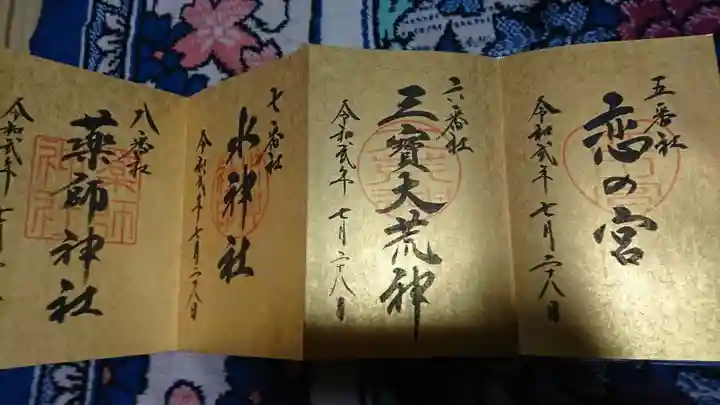 五番社
恋の宮
令和貮年 七月二十八日
六番社
三寳大荒神
令和貮年 七月二十八日
七番社
水神社
令和貮年 七月二十八日
八番社
薬師神社
令和貮年 七月